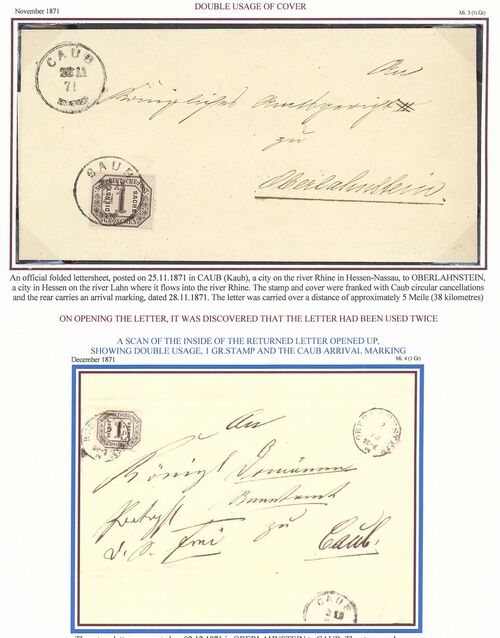 DOUBLE USAGE OF COVER
November 1871
Mi. 3 (⅓ Gr)
CAUB
71
An
Königliches Amtsgericht
zu
Oberlahnstein.
CAUB
1
DIENST
SACHE
GROSCHEN
An official folded lettersheet, posted on 25.11.1871 in CAUB (Kaub), a city on the river Rhine in Hessen-Nassau, to OBERLAHNSTEIN,
a city in Hessen on the river Lahn where it flows into the river Rhine. The stamp and cover were franked with Caub circular cancellations
and the rear carries an arrival marking, dated 28.11.1871. The letter was carried over a distance of approximately 5 Meile (38 kilometres)
ON OPENING THE LETTER, IT WAS DISCOVERED THAT THE LETTER HAD BEEN USED TWICE
A SCAN OF THE INSIDE OF THE RETURNED LETTER OPENED UP,
SHOWING DOUBLE USAGE, 1 GR.STAMP AND THE CAUB ARRIVAL MARKING
December 1871
Mi. 4 (1 Gr)
1
An
Königl Domänen
Rentamt
zu
Caub.
CAUB